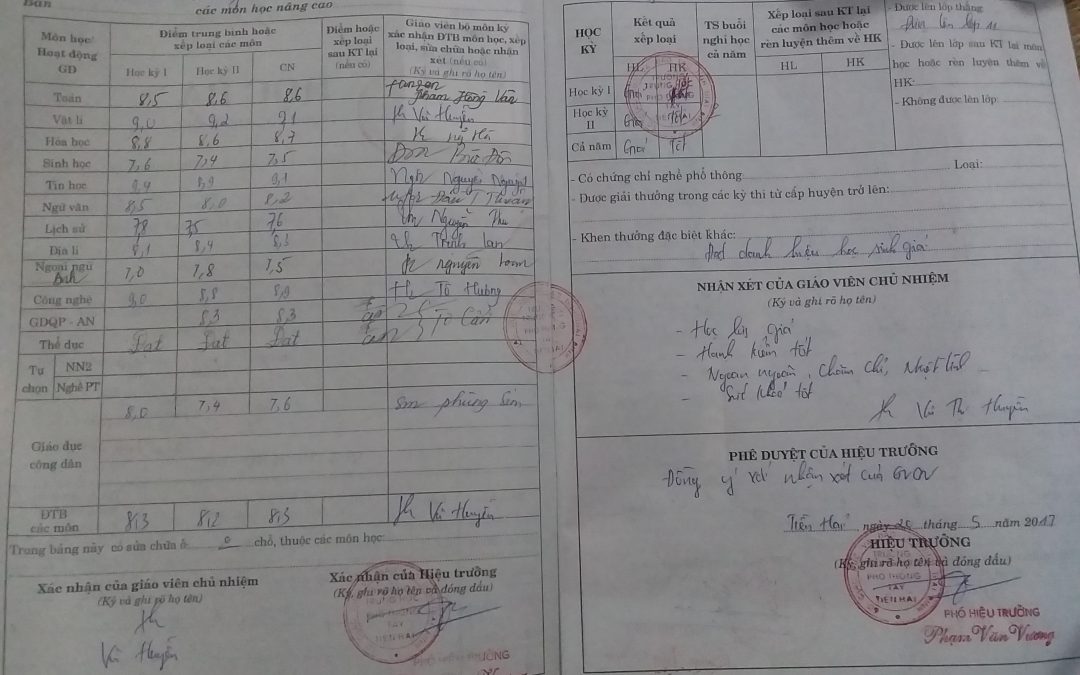 Ban
các môn học nâng cao
Môn học/ Hoạt động GD
Điểm trung bình hoặc xếp loại các môn
Học kỳ I Học kỳ II CN
Điểm hoặc xếp loại sau KT lại (nếu có)
Giáo viên bộ môn ký xác nhận ĐTB môn học, xếp loại, sửa chữa hoặc nhận xét (nếu có)
(Ký và ghi rõ họ tên)
Toán 8,5 8,6 8,6 Phạm Hồng Vân
Vật lí 9,0 9,2 9,1 Vũ Huyền
Hóa học 8,8 8,6 8,7
Sinh học 7,6 7,4 7,5
Tin học 9,4 8,9 9,1 Nguyễn Nguyệt
Ngữ văn 8,5 8,0 8,2
Lịch sử 7,8 7,5 7,6 Nguyễn Thu
Địa lí 8,1 8,4 8,3 Trịnh Lan
Ngoại ngữ Anh 7,0 7,8 7,5 Nguyễn
Công nghệ 9,0 8,8 8,9 Tô Hương
GDQP - AN 8,3 8,3
Thể dục Đạt Đạt Đạt
Tự chọn NN2
Nghề PT
8,0 7,4 7,6
Giáo dục công dân
ĐTB các môn 8,3 8,2 8,3 Vũ Huyền
Trong bảng này có sửa chữa ở 0 chỗ, thuộc các môn học:
Xác nhận của giáo viên chủ nhiệm
(Ký và ghi rõ họ tên)
Vũ Huyền
Xác nhận của Hiệu trưởng
(Ký, ghi rõ họ tên và đóng dấu)
PHÓ HIỆU TRƯỞNG
HỌC KỲ
Kết quả xếp loại
HL HK
TS buổi nghỉ học cả năm
Xếp loại sau KT lại các môn học hoặc rèn luyện thêm về HK
HL HK
Học kỳ I Giỏi Tốt
Học kỳ II Giỏi Tốt
Cả năm Giỏi Tốt
- Được lên lớp thẳng
Được lên lớp 11
- Được lên lớp sau KT lại môn
học hoặc rèn luyện thêm về
HK:
- Không được lên lớp:
- Có chứng chỉ nghề phổ thông Loại:
- Được giải thưởng trong các kỳ thi từ cấp huyện trở lên:
- Khen thưởng đặc biệt khác:
Đạt danh hiệu học sinh giỏi
NHẬN XÉT CỦA GIÁO VIÊN CHỦ NHIỆM
(Ký và ghi rõ họ tên)
- Học lực giỏi
- Hạnh kiểm tốt
- Ngoan ngoãn, Chăm chỉ, Nhiệt tình
- Sức khoẻ tốt
Vũ Thị Huyền
PHÊ DUYỆT CỦA HIỆU TRƯỞNG
Đồng ý với nhận xét của GVCN
Tiền Hải, ngày 26 tháng 5 năm 2017
HIỆU TRƯỞNG
(Ký, ghi rõ họ tên và đóng dấu)
TRƯỜNG
TRUNG HỌC
PHỔ THÔNG
TÂY
TIỀN HẢI
PHÓ HIỆU TRƯỞNG
Phạm Văn Vương